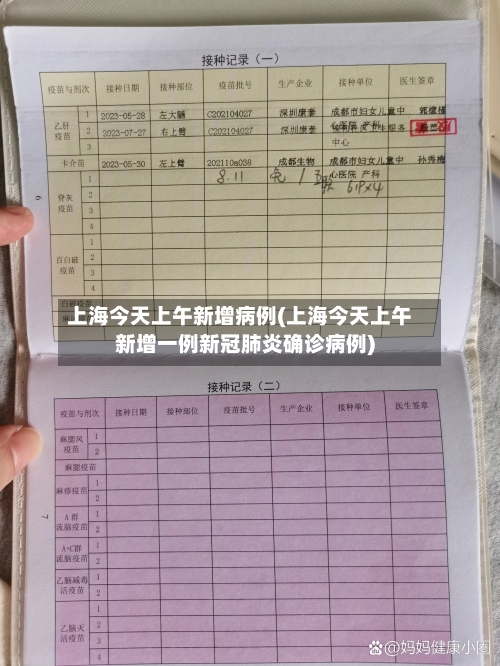 接种记录（一）
疫苗与剂次 接种日期 接种部位 疫苗批号 生产企业 接种单位 医生签章
乙肝疫苗 1 2023-05-28 左大腿 C202104027 深圳康泰 成都市妇女儿童中心医院 产科
2 2023-07-27 右上臂 C202104027 深圳康泰 中心
3
卡介苗 2023-05-30 左上臂 202110a038 成都生物 成都市妇女儿童中心医院 产科 孙秀梅
脊灰疫苗 1 8.11
2
3
4
百白破疫苗 1
2
3
4
6
上海今天上午新增病例(上海今天上午
新增一例新冠肺炎确诊病例)
接种记录（二）
疫苗与剂次 接种日期 接种部位 疫苗批号 生产企业 接种单位 医生签章
麻腮风疫苗 1
2
麻腮疫苗
麻疹疫苗 1
2
A 群流脑疫苗 1
2
A+C群流脑疫苗 1
2
乙脑减毒活疫苗 1
2
乙脑灭活疫苗 1
2
3
4
7
@妈妈健康小圈